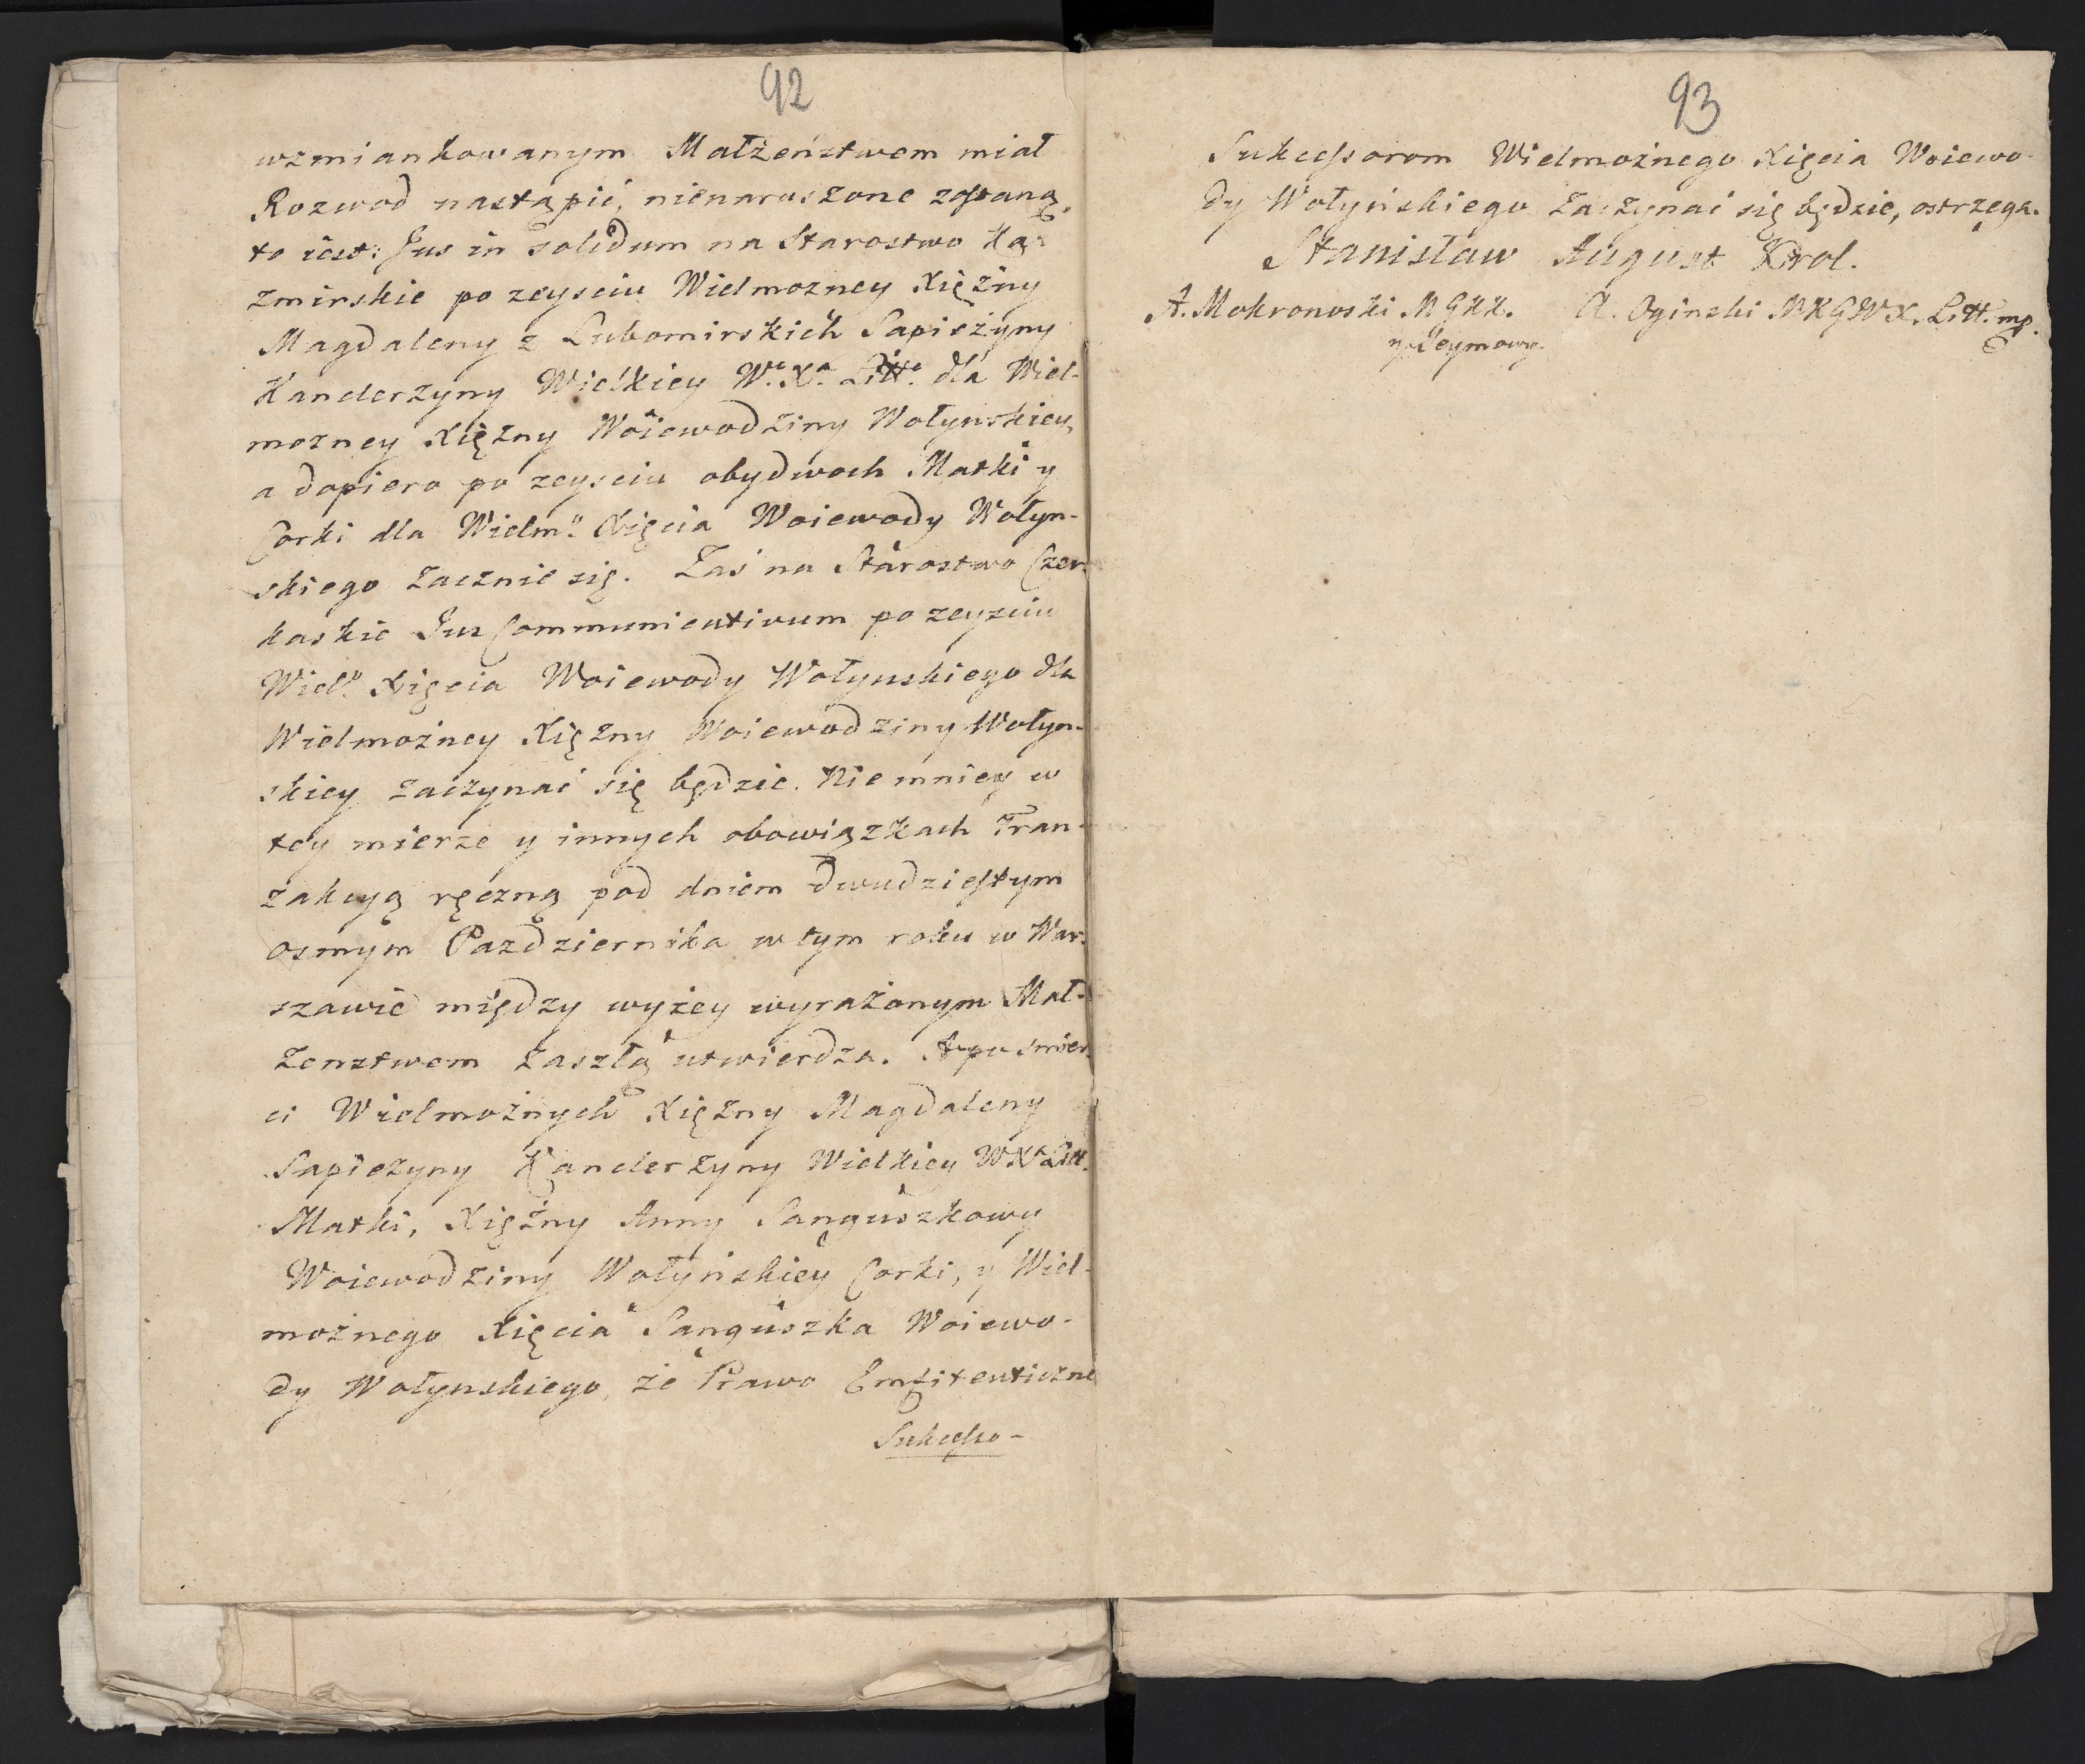 92
wzmiankowanym Małżeństwem miał
Rozwod nastąpić, nienaruszone zostaną,
to iest: Jus in solidum na Starostwo Ka-
zmirskie po zeysciu Wielmozney Xiężny
Magdaleny z Lubomirskich Sapieżyny
Kanclerzyny Wielkiey Wo. Xa. Litto. dla Wiel-
mozney Xiężny Woiewodziny Wołynskiey,
a dopiero po zeysciu obydwoch Matki y
Corki dla Wielmo. Xięcia Woiewody Wołyn-
skiego zacznie się. Zaś na Starostwo Czer-
kaskie Jus Communicativum po zeysciu
Wielo. Xięcia Woiewody Wołynskiego dla
Wielmożney Xiężny Woiewodziny Wołyn-
skiey zaczynać się będzie. Nie mniey w
tey mierze y innych obowiązkach Tran-
zakcyą ręczną pod dniem dwudziestym
osmym Pazdziernika w tym roku w War-
szawie między wyżey wyrażonym Mał-
żenstwem zaszłą utwierdza. A po smier-
ci Wielmożnych Xiężny Magdaleny
Sapieżyny Kanclerzyny Wielkiey W. Xa Litt.
Matki, Xiężny Anny Sanguszkowy
Woiewodziny Wołyńskiey Corki, y Wiel-
możnego Xięcia Sanguszka Woiewo-
dy Wołynskiego, że Prawo Emfiteuticzne
Sukcesso-
93
Sukcessorom Wielmożnego Xięcia Woiewo-
dy Wołyńskiego zaczynać się będzie, ostrzega.
Stanisław August Krol.
A. Mokronoski M G K K. A. Oginski M K G W X. Litt. mp.
y Seymowy.